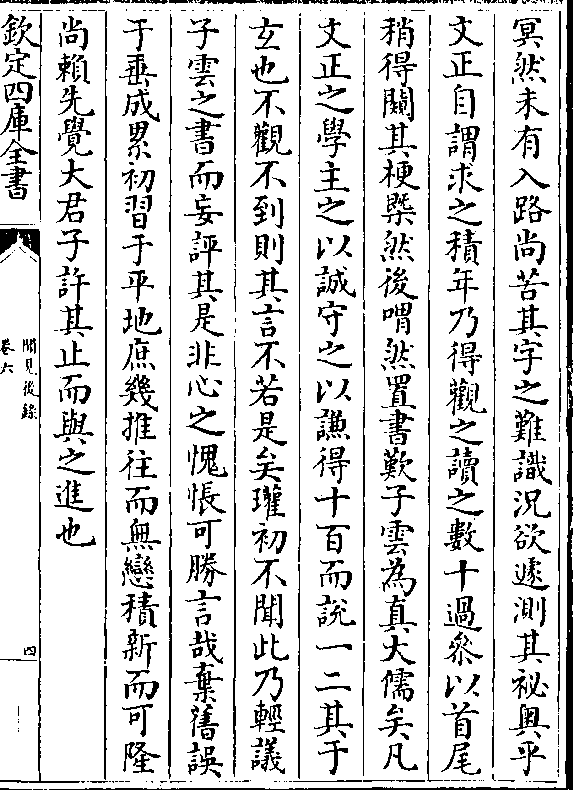 冥然未有入路尚苦其字之難識況欲遽測其祕奥乎
文正自謂求之積年乃得觀之讀之數十過叅以首尾
稍得闚其梗槩然後喟然置書歎子雲為真大儒矣凡
文正之學主之以誠守之以謙得十百而說一二其于
玄也不觀不到則其言不若是矣瓘初不聞此乃輕議
子雲之書而妄評其是非心之愧悵可勝言哉棄舊誤
于垂成累初習于平地庶幾推往而無戀積新而可隆
尚賴先覺大君子許其止而與之進也
欽定四庫全書
聞見後錄
卷六
四